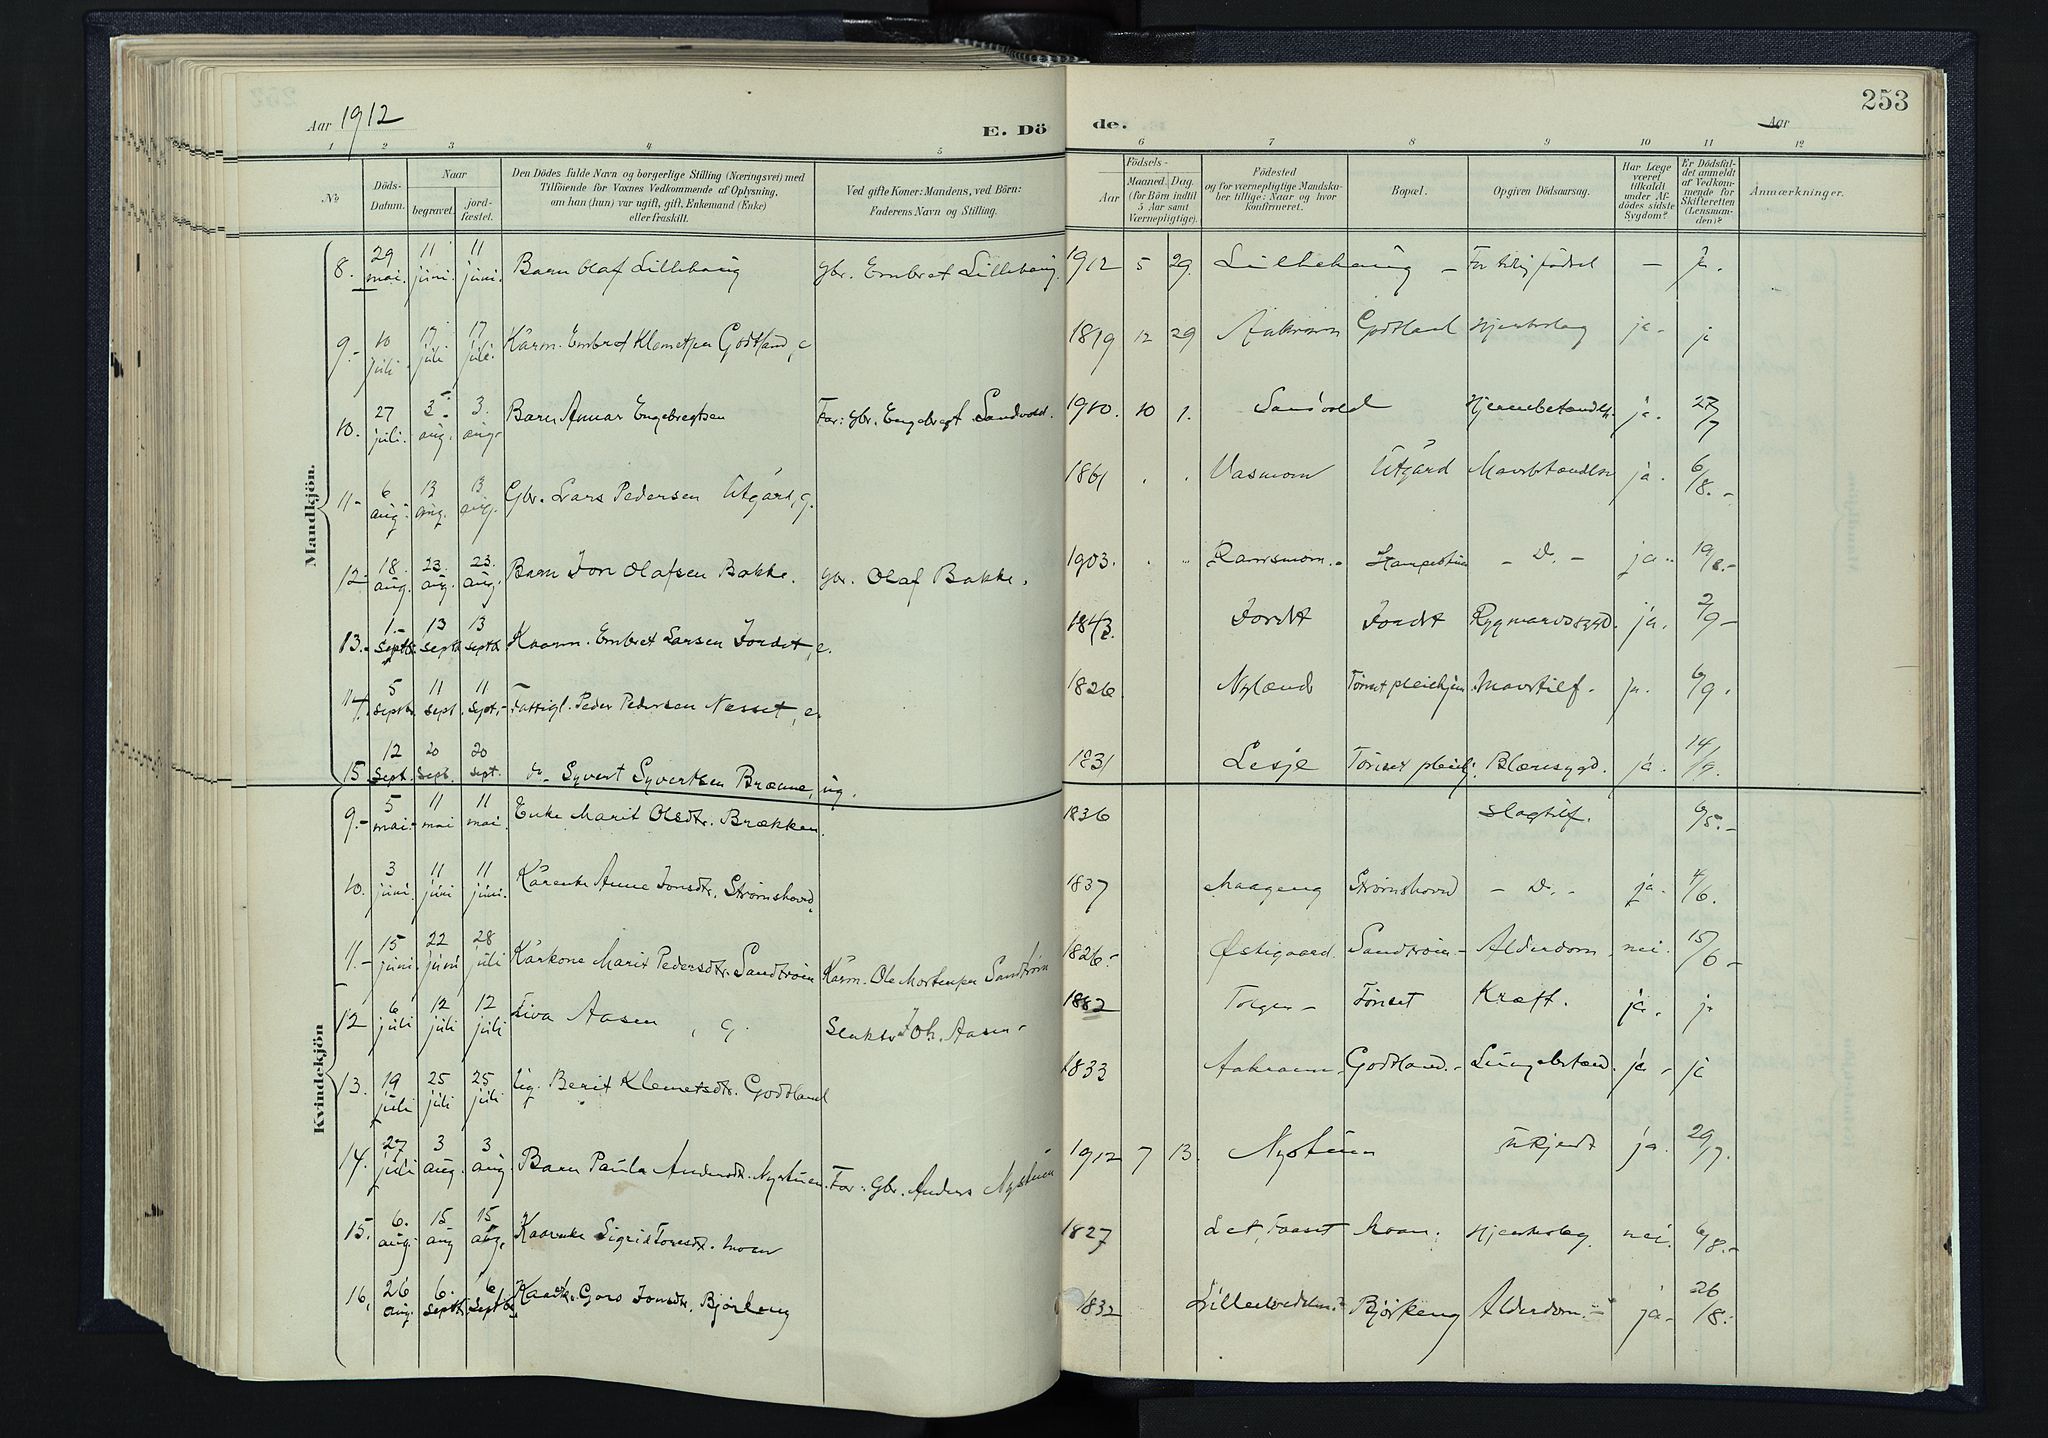 Aar 1912
E. Dö de.
253
Aar
1 2 3 4 5 6 7 8 9 10 11 12
№
Döds-Datum.
Naar
begravet.
jord-fæstet.
Den Dödes fulde Navn og borgerlige Stilling (Næringsvei) med Tilföiende for Voxnes Vedkommende af Oplysning, om han (hun) var ugift, gift, Enkemand (Enke) eller fraskilt.
Ved gifte Koner: Mandens, ved Börn: Faderens Navn og Stilling.
Födsels-
Aar
Maaned. Dag.
(for Börn indtil 5 Aar samt Værnepligtige).
Födested og for værnepligtige Mandskaber tillige: Naar og hvor konfirmeret.
Bopæl.
Opgiven Dödsaarsag.
Har Læge været tilkaldt under Afdödes sidste Sygdom?
Er Dödsfaldet anmeldt af Vedkommende for Skifteretten (Lensmanden)?
Anmærkninger.
Mandkjön.
8. 29 mai. 11 juni. 11 juni. Barn Olaf Lillehaug Gbr. Embret Lillehaug. 1912 5 29. Lillehaug – For tidlig födsel – ja.
9.- 10 juli. 17 juli 17 juli. Kårm. Embret Klemetsen Godtland, e 1819 12 29 Aakrann Godtland Hjerteslag ja- ja
10. 27 juli. 3. aug. 3. aug. Barn Annar Engebregtsen Far: Gbr. Engebregt Sandvold. 1910. 10 1. Sandvold Hjernebetændels. ja. 27/7
11- 6 aug. 13 aug. 13 aug. Gbr. Lars Pedersen Utgård, g. 1861 . . Vasmoen Utgård Mavebetændelse ja. 6/8.-
12- 18. aug. 23. aug. 23. aug. Barn Jon Olafsen Bakke. Gbr. Olaf Bakke. 1903. . . Ramsmoen.- – D. – ja.. 19/8.-
13.- 1.- septbr. 13 septb 13 septb Kaarm. Embret Larsen Jordet, e. 1843. Jordet Jordet Rygmarvssygd. ja. 2/9-
14. 5 septbr. 11 sept. 11 sept.- Fattigl. Peder Pedersen Næsset, e. 1826. Nyland Tönset pleiehjem. Mavetilf. ja. 6/9.
15. 12 sept. 20 sept. 20 sept. do. Syvert Syvertsen Brænne, ug. 1831 Lesje Tönset pleiehj. Blæresygd. ja. 14/9.
Kvindekjön
9.- 5 mai.- 11 mai 11 mai. Enke Marit Olsdtr. Brækken. 1836 Slagtilf. 6/5.-
10. 3 juni. 11 juni 11 juni. Kårenke Anne Jonsdtr. Strömshovd. 1837 Maageng Strömshovd – D. – ja. 4/6.
11.- 15 juni. 22 juni 28 juli Kårkone Marit Pedersdtr. Sandtröen Kårm. Ole Mortensen Sandtröen 1826.- Östigaard. Sandtröen- Alderdom. nei. 15/6-
12 6 juli 12 juli 12 juli Liva Aasen, g. Joh. Aasen- 1882 Tolgen- Tönset Kræft. ja. ja
13. 19 juli 25 juli 25 juli ug. Berit Klemetsdtr. Godtland 1833 Aakrann. Godtland.- Lungebetænd. ja- ja
14. 27 juli 3 aug. 3 aug. Barn Paula Andersdtr. Nystuen. Far: Gbr. Anders Nystuen 1912 7 13. Nystuen Ukjendt ja. 29/7.
15. 6. aug. 15 aug 15 aug. Kaarenke Sigrid Toresdtr. Moen 1827 Moen. Hjerteslag. nei. 6/8.-
16. 26 aug. 6. septb. 6 septbr. Kaarenk. Goro Jonsdtr. Bjørkeng 1832 Bjørkeng Alderdom.- ja- 26/8.-